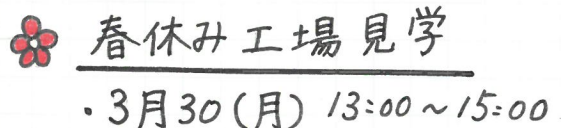 春休み工場見学
・3月30(月) 13:00～15:00